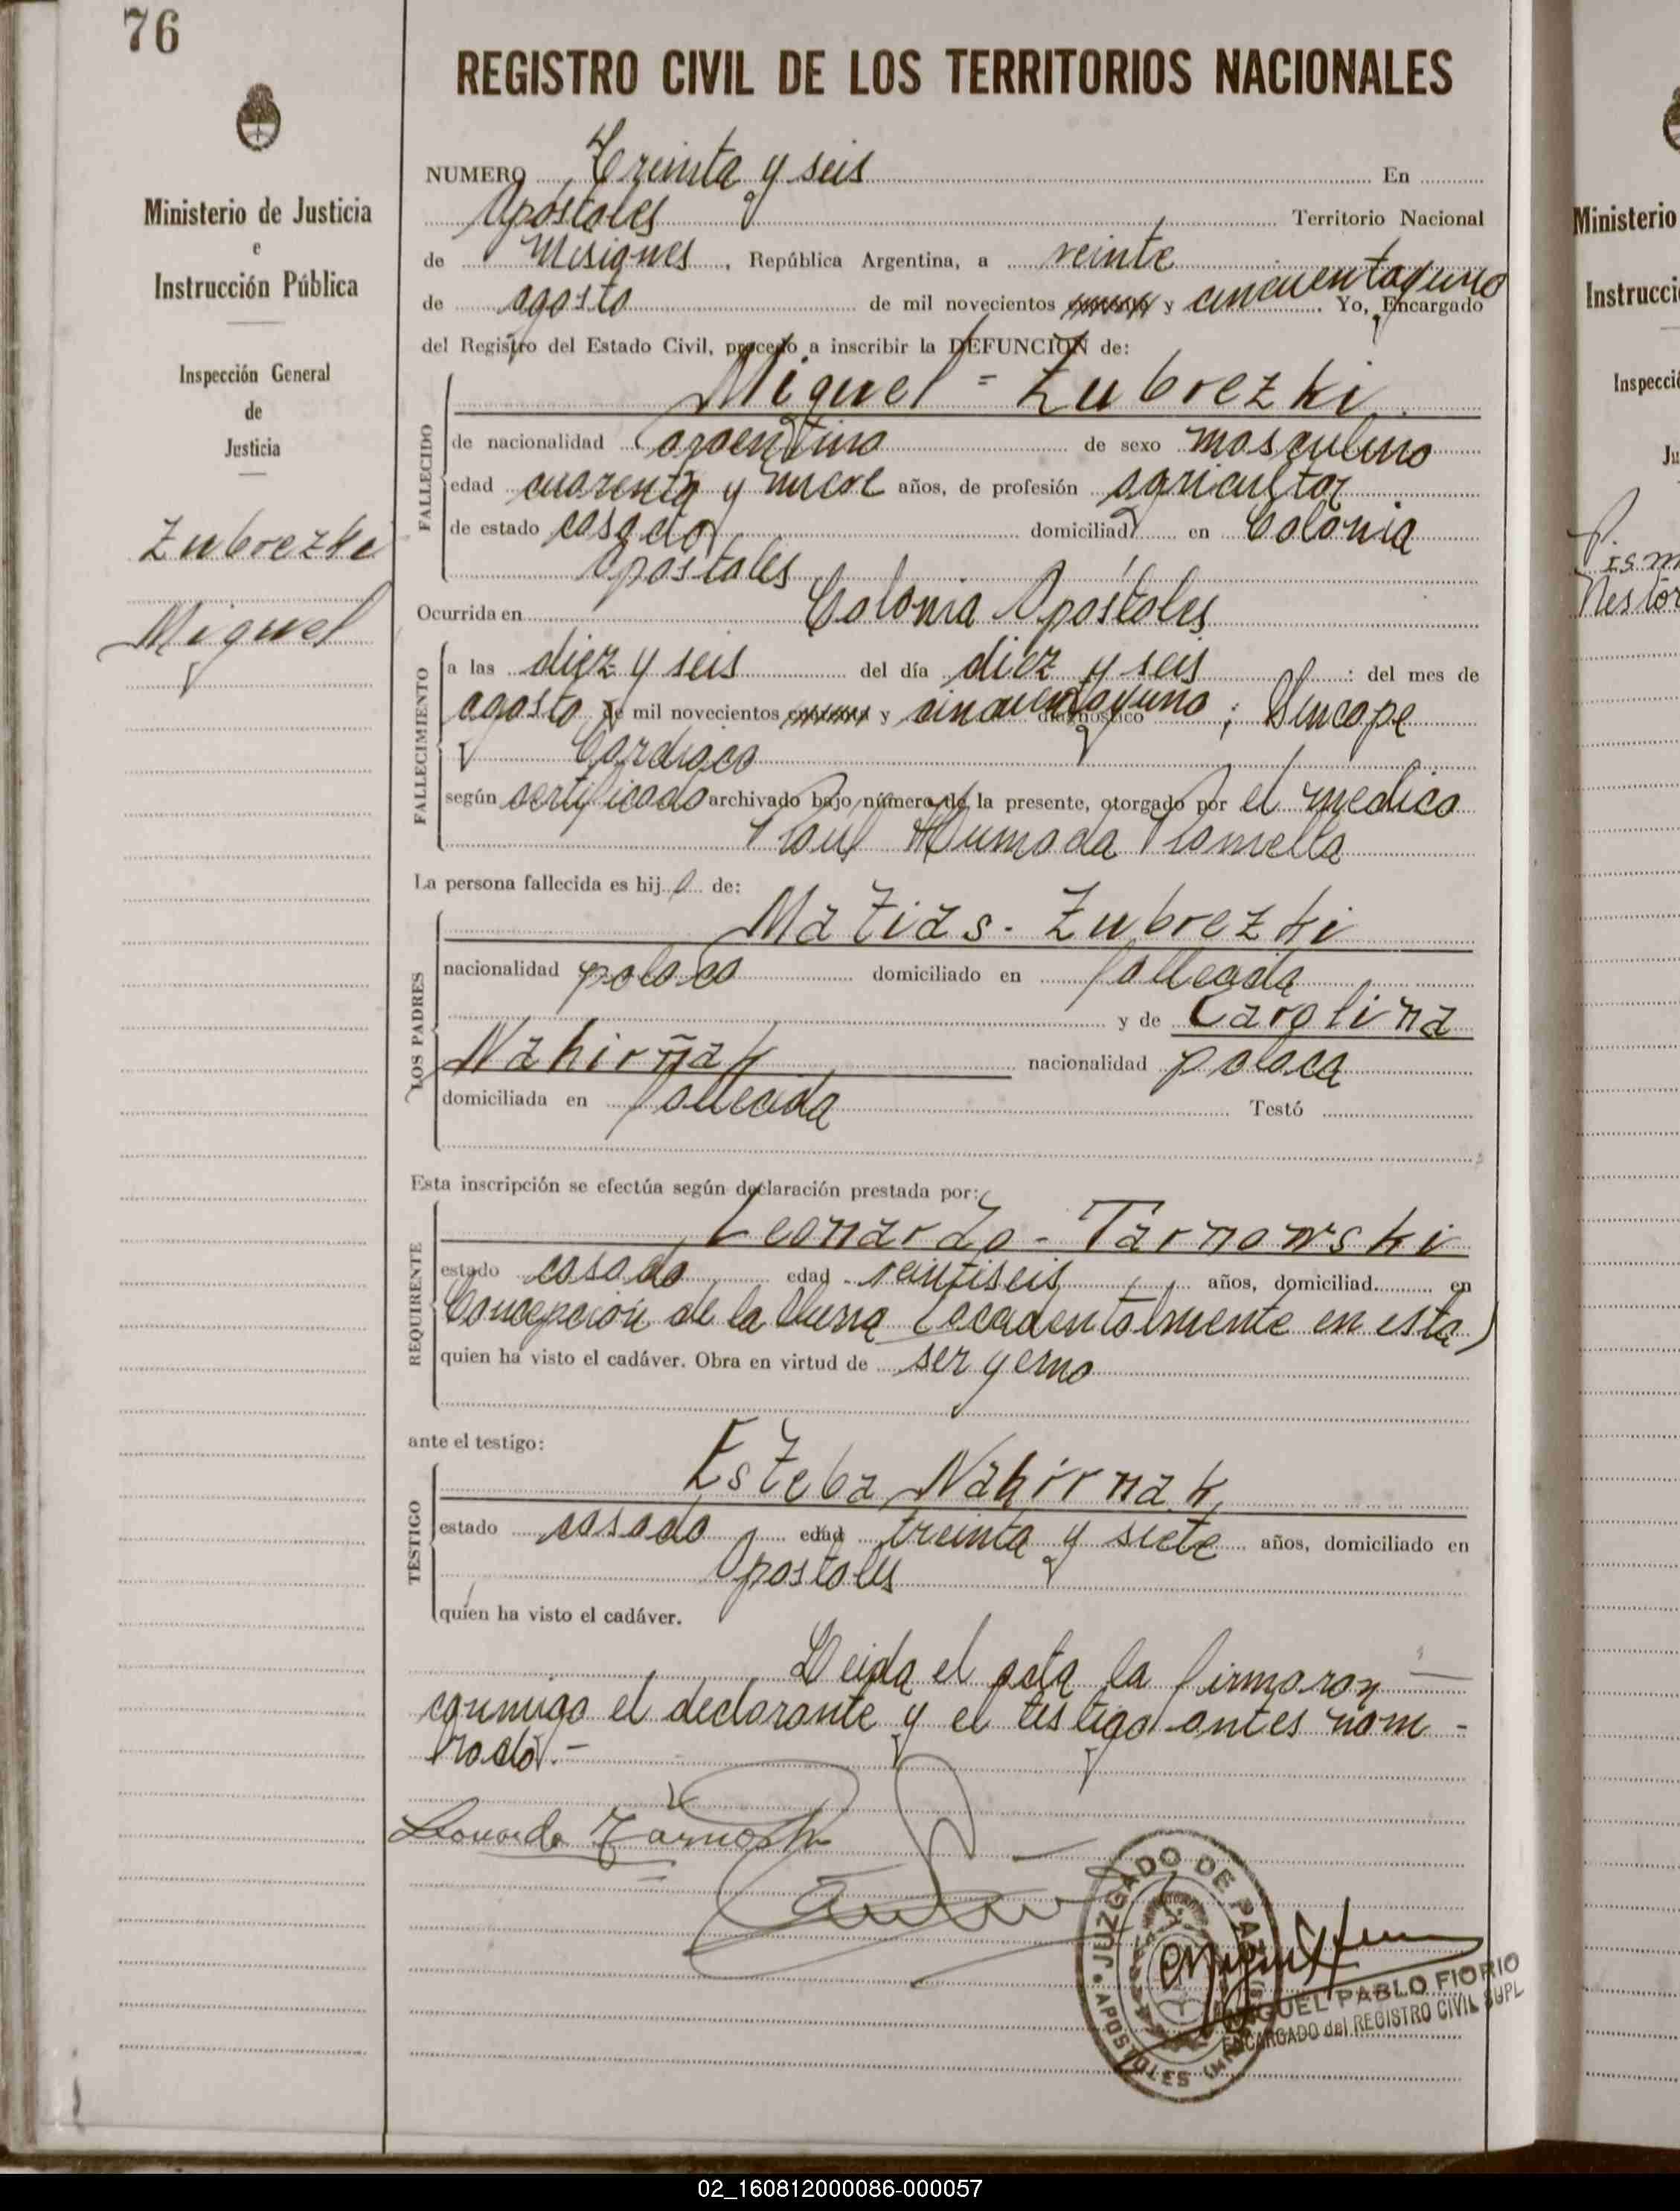 76
REGISTRO CIVIL DE LOS TERRITORIOS NACIONALES
Ministerio de Justicia
e
Instrucción Pública
Inspección General
de
Justicia
Zubrezki
Miguel
NUMERO Treinta y seis En
Apóstoles Territorio Nacional
de Misiones, República Argentina, a veinte
de agosto de mil novecientos y cincuentayuno. Yo, Encargado
del Registro del Estado Civil, procedo a inscribir la DEFUNCION de:
FALLECIDO
Miguel = Zubrezki
de nacionalidad argentino de sexo masculino
edad cuarenta y nueve años, de profesión agricultor
de estado casado domiciliad en Colonia
Apóstoles
Ocurrida en Colonia Apóstoles
FALLECIMIENTO
a las diez y seis del día diez y seis : del mes de
agosto de mil novecientos y cincuentayuno ; diagnóstico Síncope
Cardiaco
según certificado archivado bajo número de la presente, otorgado por el medico
Raul Humada
La persona fallecida es hijo de:
LOS PADRES
Matias - Zubrezki
nacionalidad polaco domiciliado en fallecido
y de Carolina
Nahirñak nacionalidad polaca
domiciliada en fallecida Testó
Esta inscripción se efectúa según declaración prestada por:
REQUIRENTE
Leonardo - Tarnowski
estado casado edad veintiseis años, domiciliad en
Concepción de la Sierra (accidentalmente en esta)
quien ha visto el cadáver. Obra en virtud de ser yerno
ante el testigo:
TESTIGO
Esteba Nahirnak
estado casado edad treinta y siete años, domiciliado en
Apostoles
quien ha visto el cadáver.
Leida el acta la firmaron
conmigo el declarante y el testigo antes nom-
brado.-
Leonardo
JUZGADO DE PAZ
APOSTOLES
MIGUEL PABLO FIORIO
ENCARGADO del REGISTRO CIVIL SUPL
Ministerio
Instrucci
Inspecci
Ju
Nestor
02_160812000086-000057